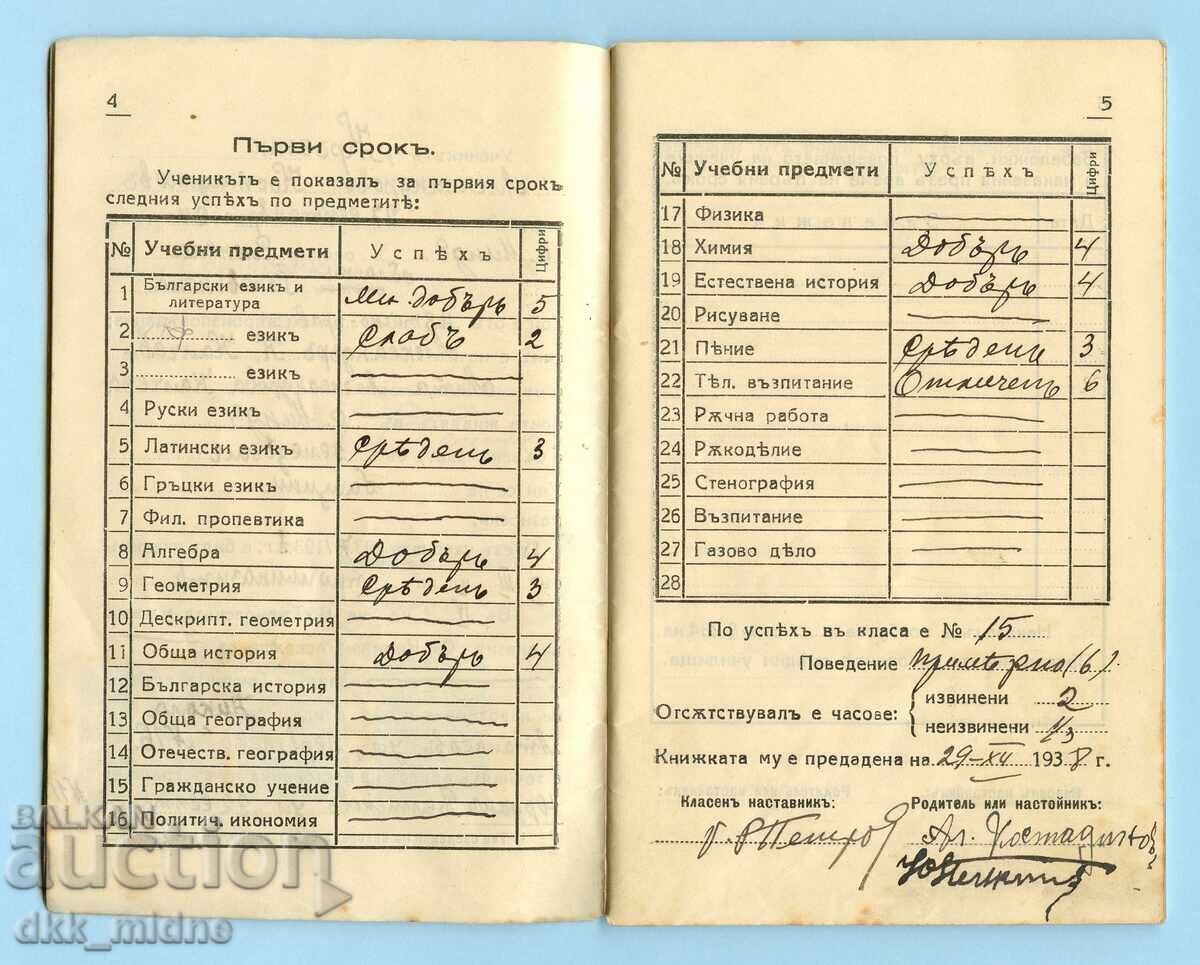 4
Първи срокъ.
Ученикътъ е показалъ за първия срокъ
следния успѣхъ по предметитѣ:
№ Учебни предмети Успѣхъ Цифри
1 Български езикъ и литература Мн. добъръ 5
2 езикъ Слабъ 2
3 езикъ
4 Руски езикъ
5 Латински езикъ Срѣденъ 3
6 Гръцки езикъ
7 Фил. пропевтика
8 Алгебра Добъръ 4
9 Геометрия Срѣденъ 3
10 Дескрипт. геометрия
11 Обща история Добъръ 4
12 Българска история
13 Обща география
14 Отечеств. география
15 Гражданско учение
16 Политич. икономия
5
№ Учебни предмети Успѣхъ Цифри
17 Физика
18 Химия Добъръ 4
19 Естествена история Добъръ 4
20 Рисуване
21 Пѣние Срѣденъ 3
22 Тѣл. възпитание Отличенъ 6
23 Рѫчна работа
24 Рѫкодѣлие
25 Стенография
26 Възпитание
27 Газово дѣло
28
По успѣхъ въ класа е № 15
Поведение примѣрно (6)
Отсѫтствувалъ е часове:
извинени 2
неизвинени 1/3
Книжката му е предадена на 29-XII 1938 г.
Класенъ наставникъ: Родитель или настойникъ:
BALKAN
auction
dkk_midne